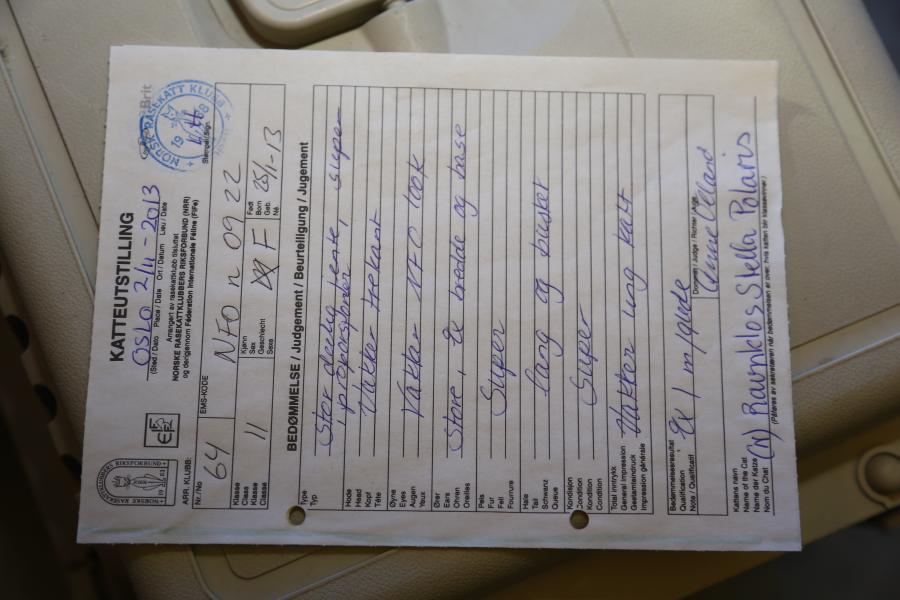 KATTEUTSTILLING
OSLO 2/11-2013
(Sted / Dato Place / Date Ort / Datum Lieu / Date)
Arrangert av rasekattklubb tilsluttet
NORSKE RASEKATTKLUBBERS RIKSFORBUND (NRR)
og derigjennom Fédération Internationale Féline (FIFe)
Brit
NORSK RASEKATT KLUBB
19 68
Stempel/Sign.
NORSKE RASEKATTKLUBBERS RIKSFORBUND
ARR. KLUBB:
Nr./No
64
EMS-KODE
NFO n 09 22
Klasse
Class
Klasse
Classe
11
Kjønn
Sex
Geschlecht
Sexe
F
Født
Born
Geb.
Né
25/1-13
BEDØMMELSE / Judgement / Beurteiligung / Jugement
Type
Typ
Stor deilig jente, super
proporsjoner
Hode
Head
Kopf
Tête
Vakker trekant
Øyne
Eyes
Augen
Yeux
Vakker NFO look
Ører
Ears
Ohren
Oreilles
Store, bredde og base
Pels
Fur
Fell
Fourrure
Super
Hale
Tail
Schwanz
Queue
lang og busket
Kondisjon
Condition
Kondition
Condition
Super
Total inntrykk
General Impression
Gesamteindruck
Impression générale
Vakker ung katt
Bedømmelsesresultat
Qualification
Note / Qualificatif
Ex 1
Dommer / Judge / Richter / Juge
Kattens navn
Name of the Cat
Name der Katze
Nom du Chat
(N) Ravnklos Stella Polaris
(Påføres av sekretæren når bedømmelsen er over, hvis katten blir klassevinner)